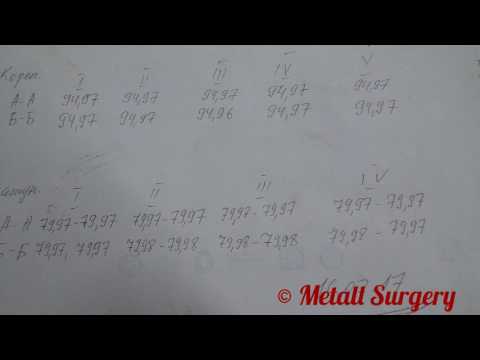 Корен.
I II III IV V
А-А 94,97 94,97 94,97 94,97 94,97
Б-Б 94,97 94,97 94,96 94,97 94,97
I II III IV
А-А 79,97-79,97 79,97-79,97 79,97-79,97 79,97-79,97
Б-Б 79,97, 79,97 79,98-79,98 79,98-79,98 79,98-79,97
© Metall Surgery